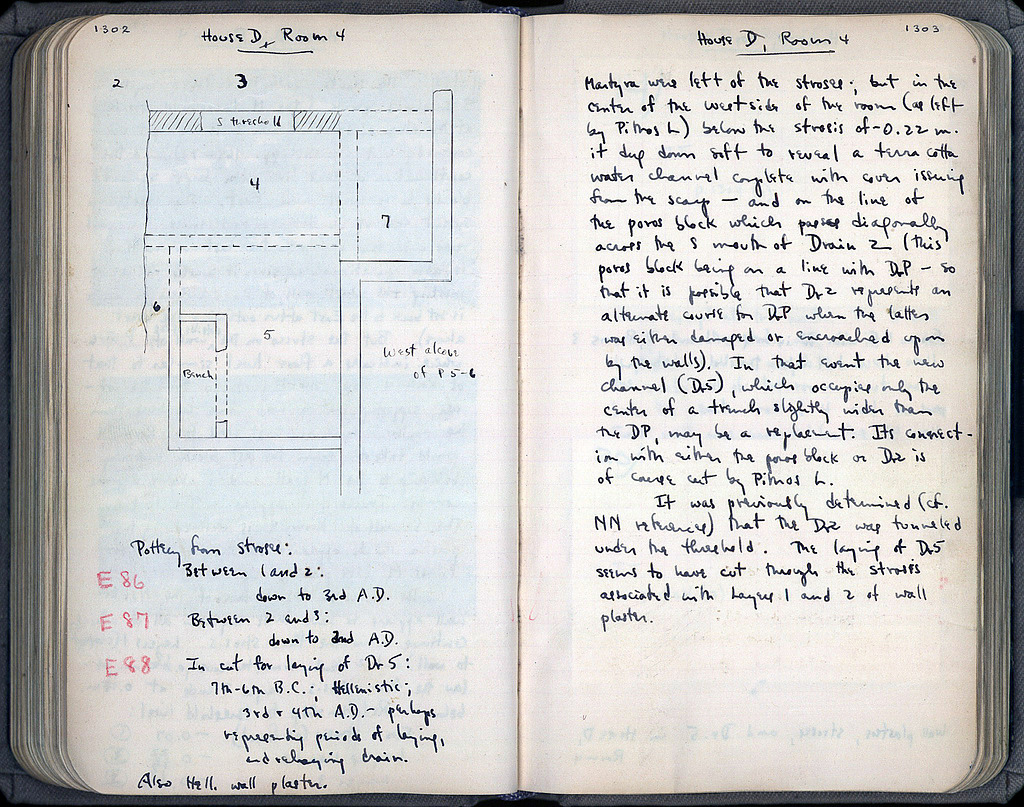 1302
House D, Room 4
2
3
S threshold
4
7
6
5
Bench
West alcove
of P 5-6
Pottery from stroses:
E 86
Between 1 and 2:
down to 3rd A.D.
E 87
Between 2 and 3:
down to 2nd A.D.
E 88
In cut for laying of Dr 5:
7th-6th B.C.; Hellenistic;
3rd + 4th A.D. - perhaps
representing periods of laying,
and relaying drain.
Also Hell. wall plaster.
1303
House D, Room 4
Martyra were left of the stroses; but in the
center of the west side of the room (as left
by Pithos L) below the strosis of -0.22 m.
it dug down soft to reveal a terra cotta
water channel complete with cover issuing
from the scarp — and on the line of
the poros block which passes diagonally
across the S mouth of Drain 2 (this
poros block being on a line with DrP — so
that it is possible that Dr 2 represents an
alternate course for DrP when the latter
was either damaged or encroached upon
by the walls). In that event the new
channel (Dr5), which occupies only the
center of a trench slightly wider than
the DP, may be a replacement. Its connect-
ion with either the poros block or Dr2 is
of course cut by Pithos L.
It was previously determined (cf.
NN references) that the Dr2 was tunneled
under the threshold. The laying of Dr5
seems to have cut through the stroses
associated with Layers 1 and 2 of wall
plaster.